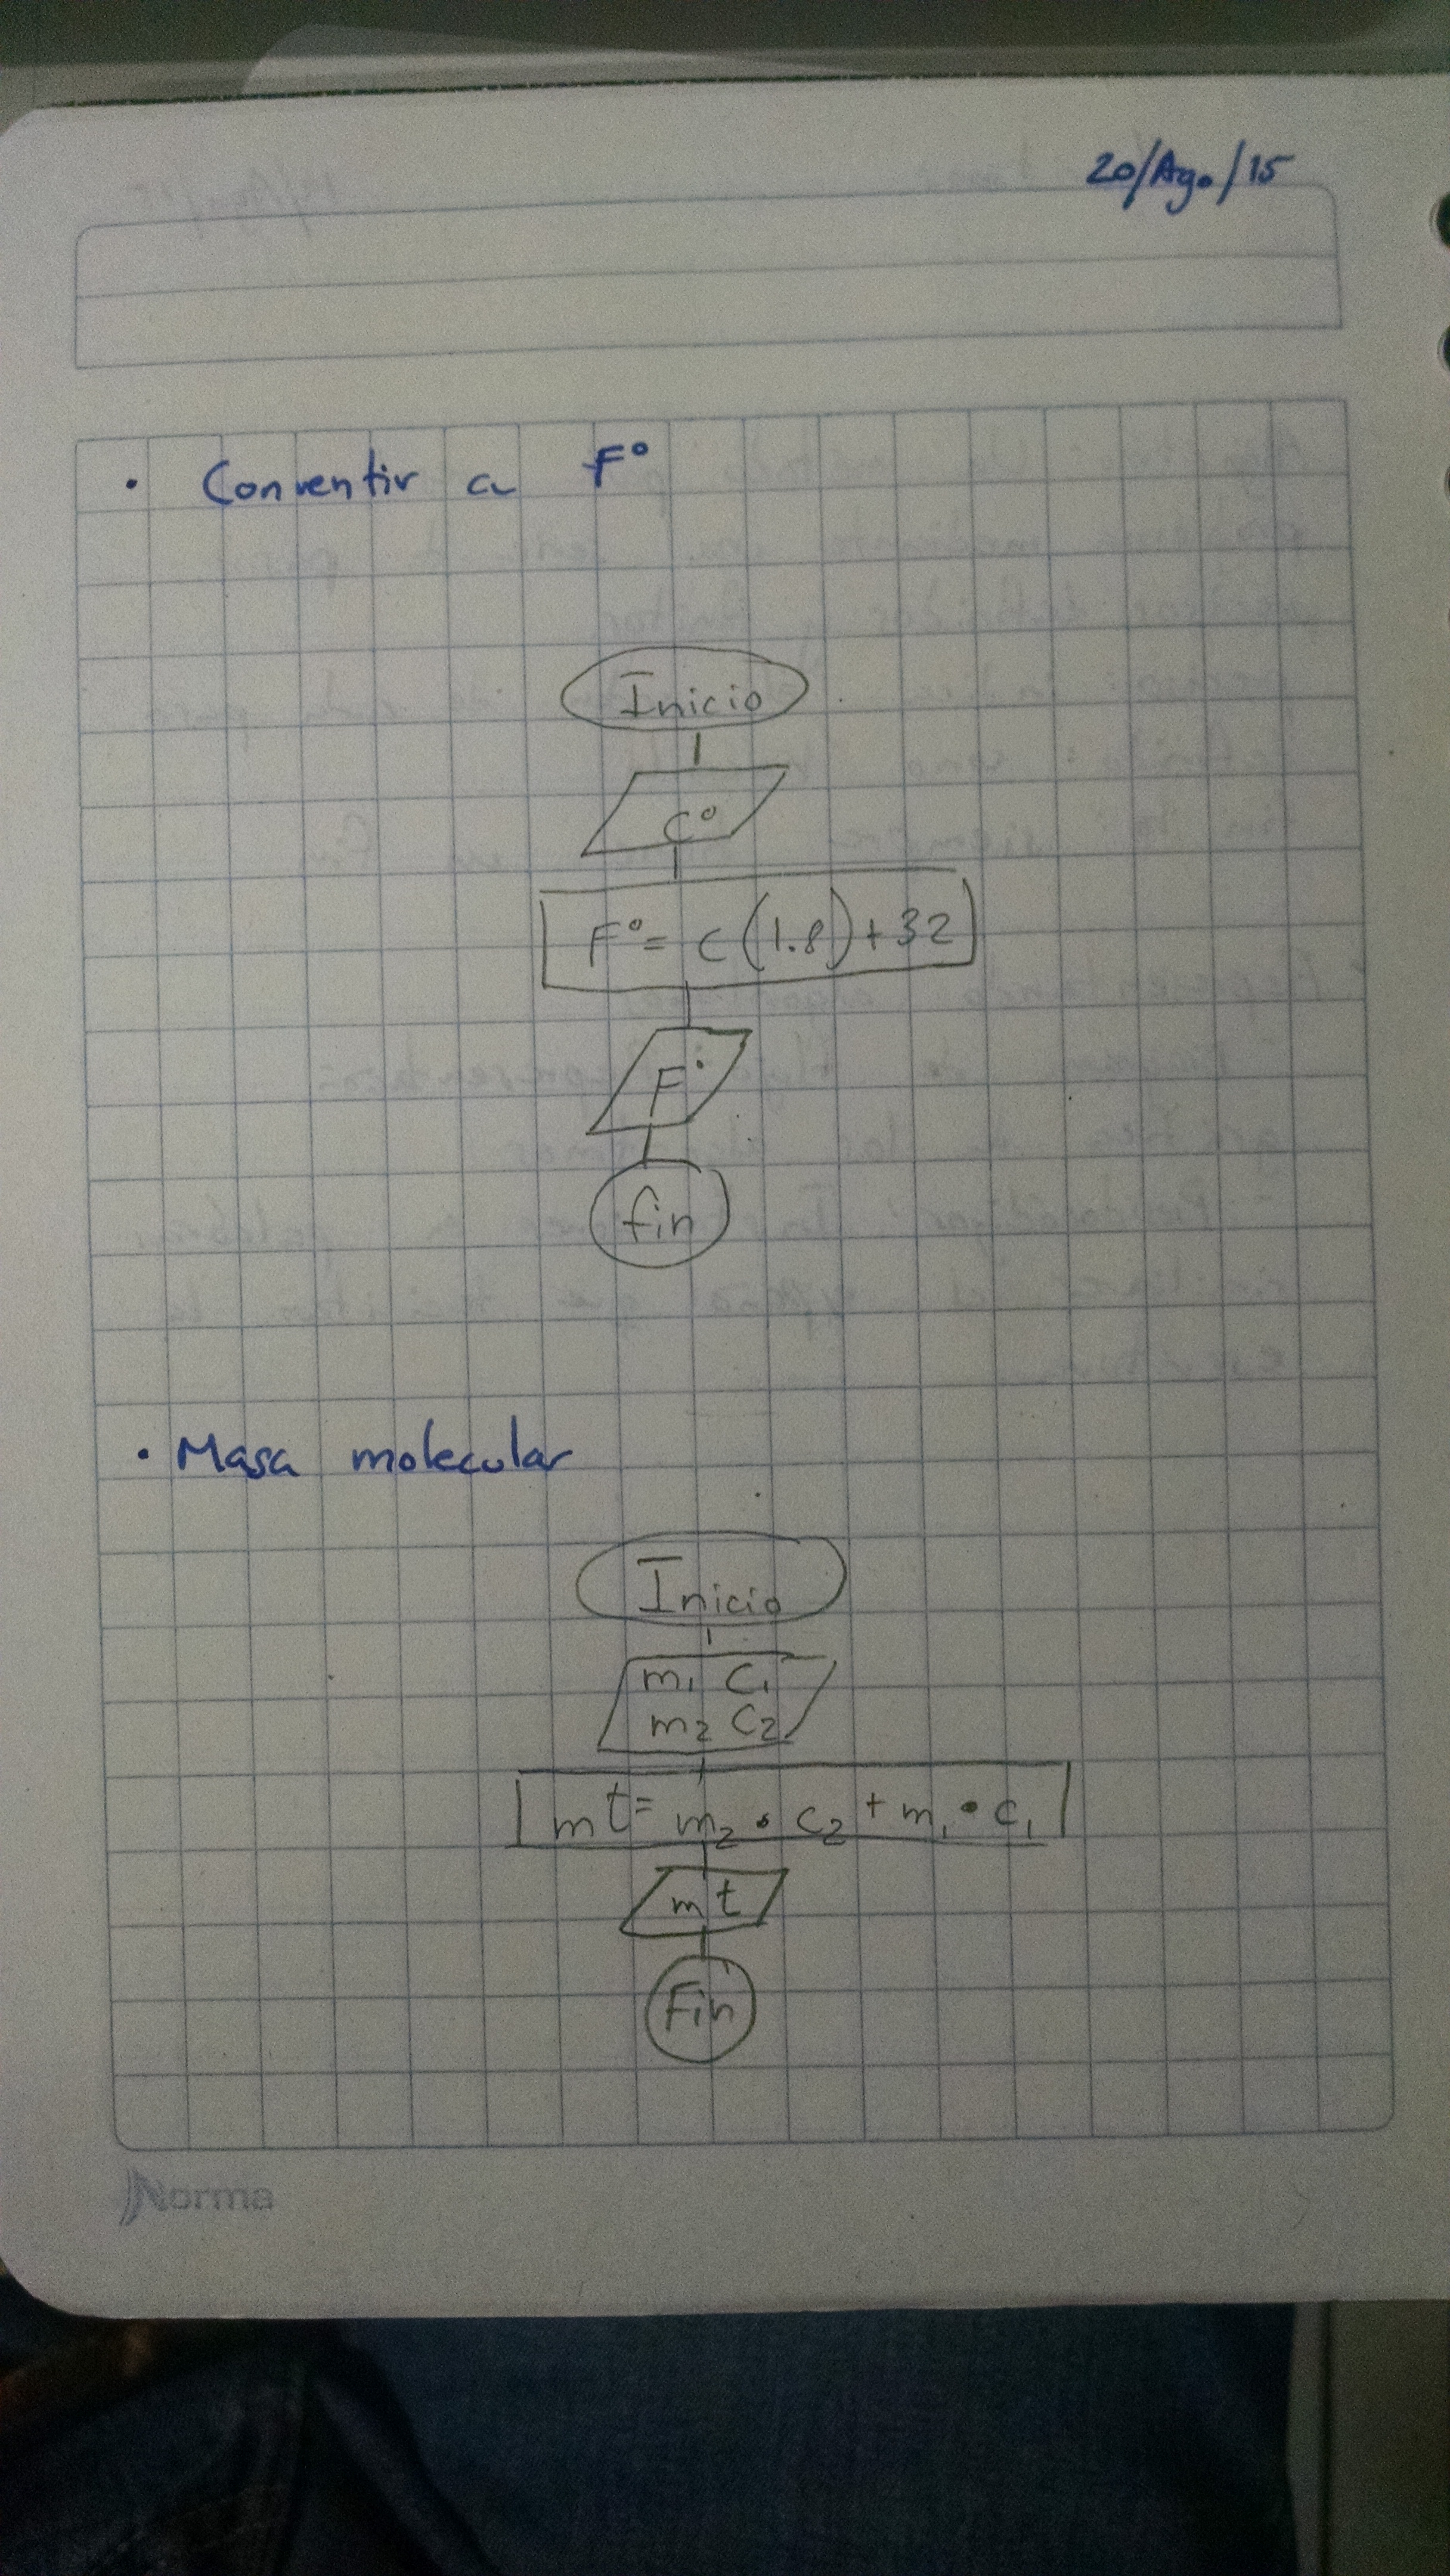 20/Ago/15
• Conventir a F°
Inicio
C°
F°= C(1.8)+32
F°
fin
• Masa molecular
Inicio
m₁ C₁
m₂ C₂
mt= m₂ • C₂ + m₁ • C₁
mt
Fin
Norma